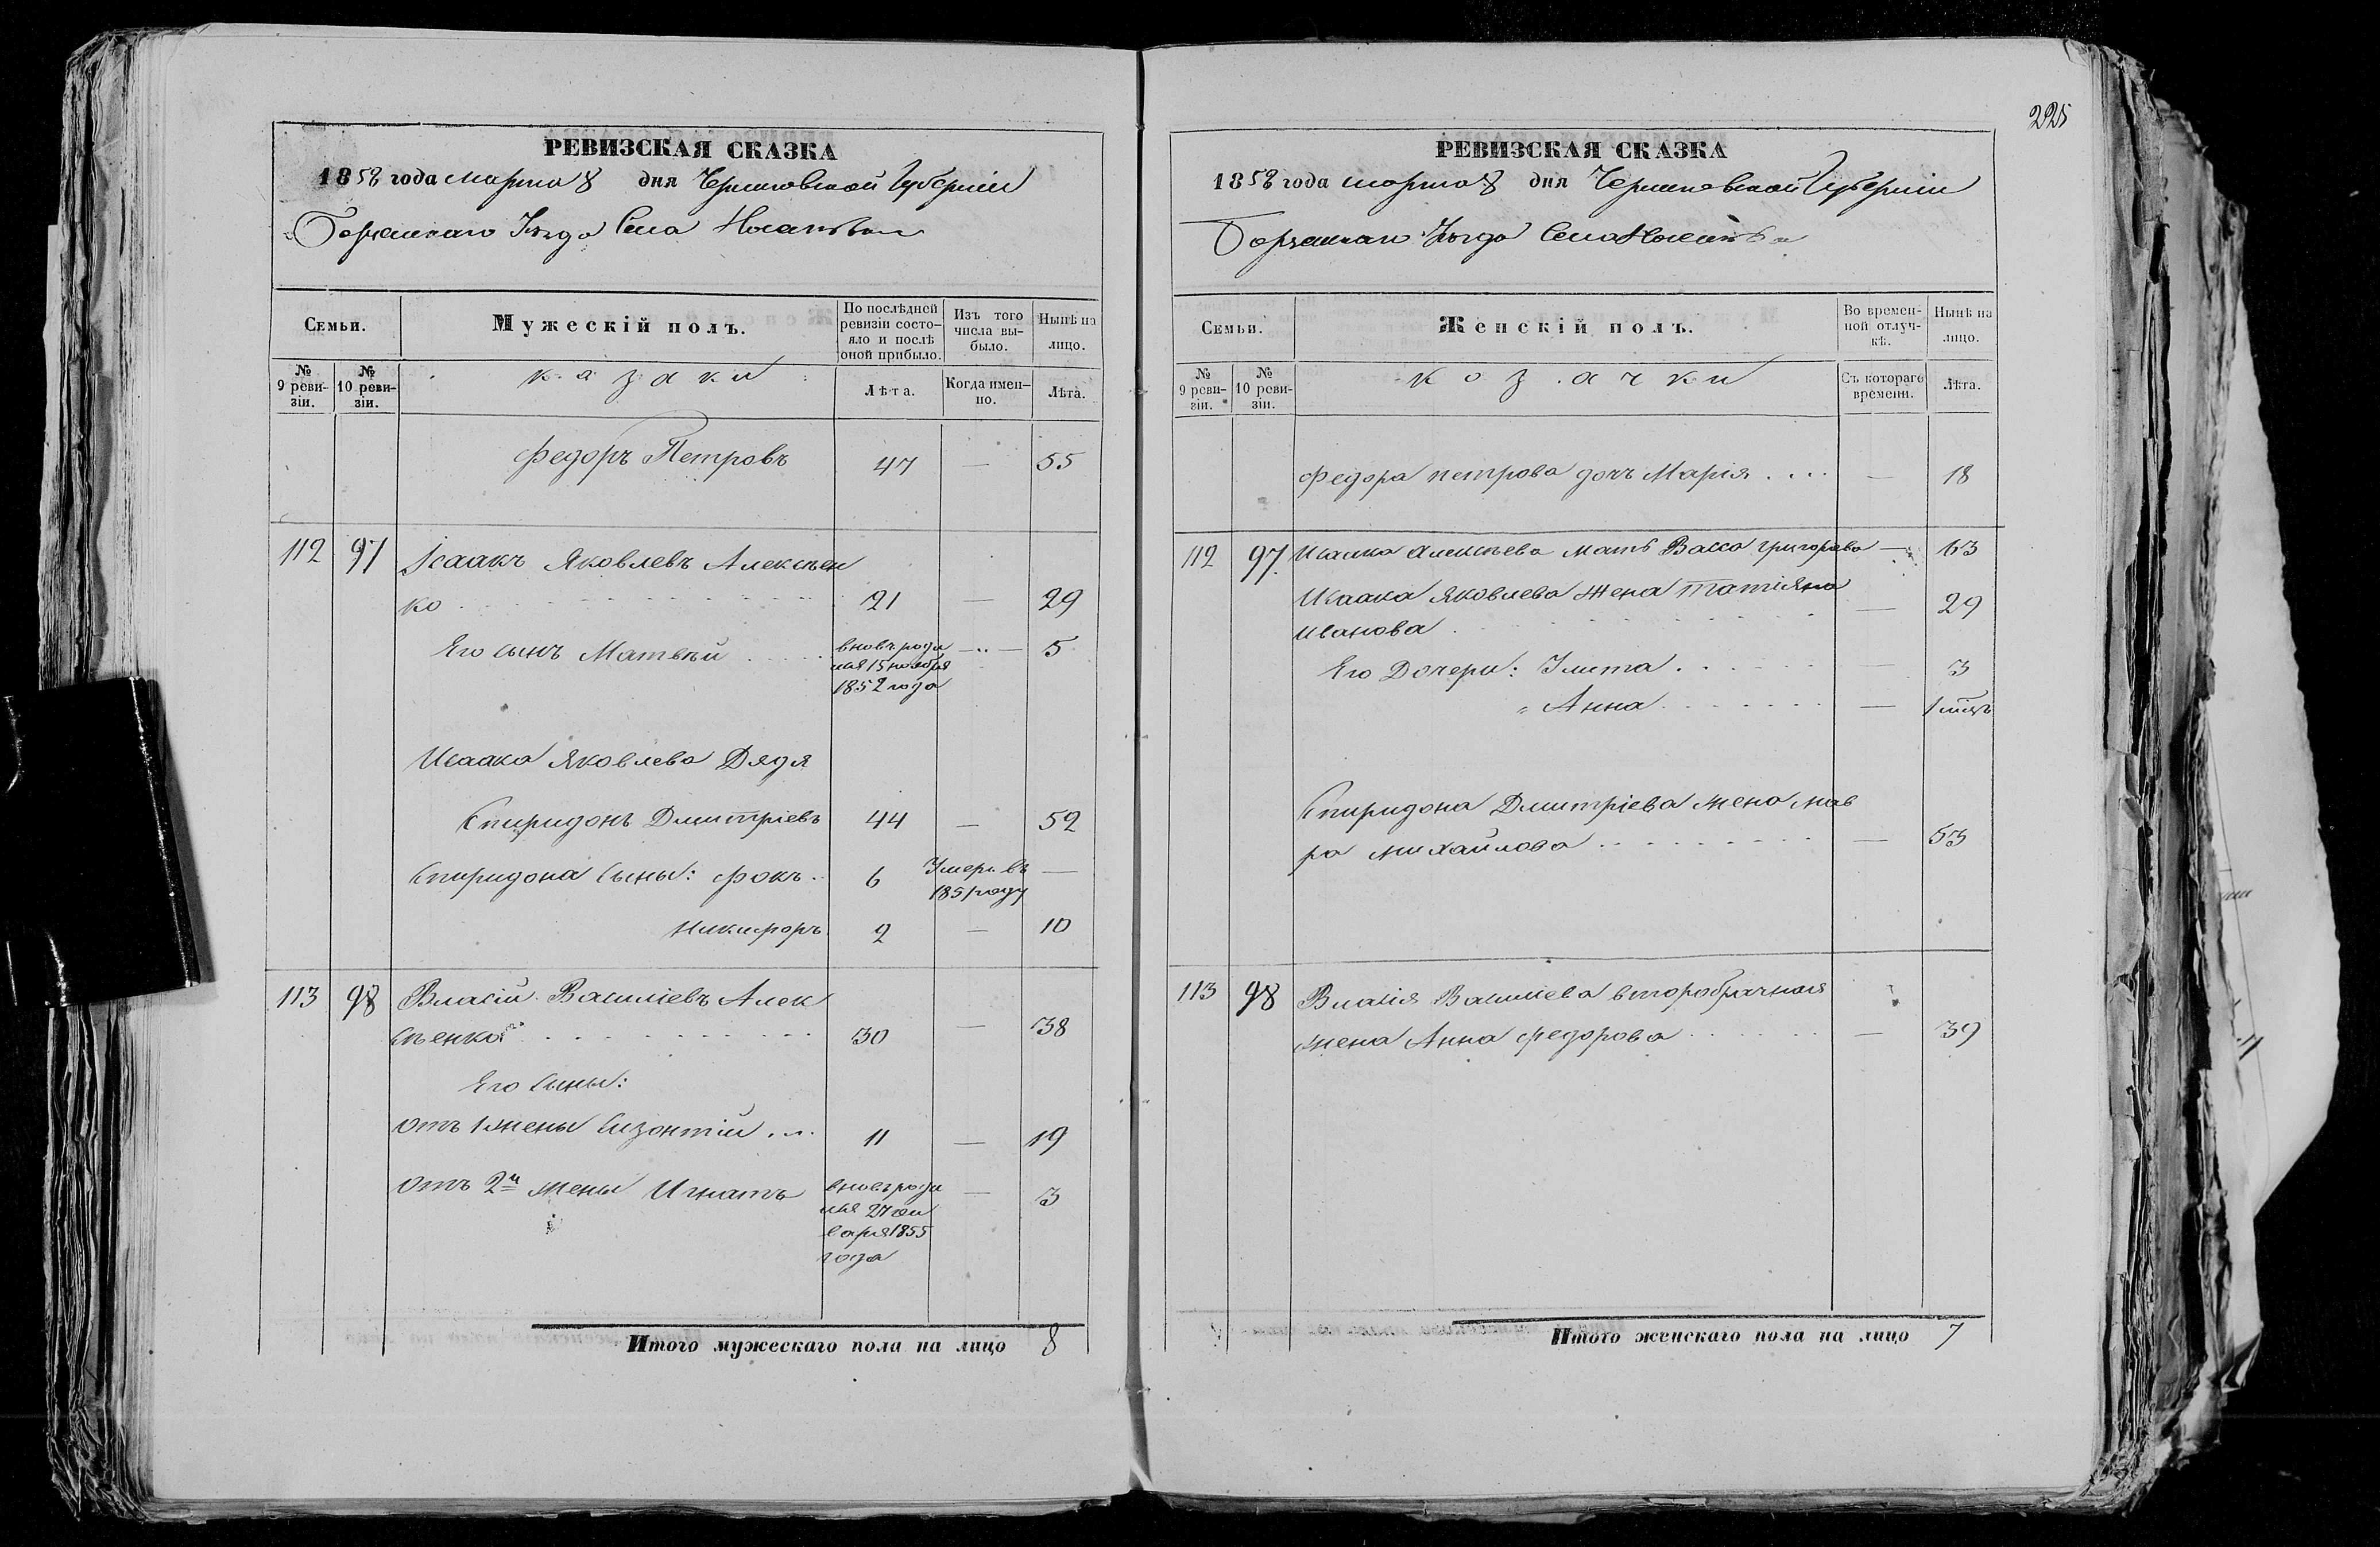 РЕВИЗСКАЯ СКАЗКА
1858 года марта 8 дня Черниговской Губернии
Борзенскаго Уезда Села
Семьи. Мужескій полъ. По послѣдней ревизіи состояло и послѣ оной прибыло. Изъ того числа выбыло. Нынѣ на лицо.
№ 9 ревизіи. № 10 ревизіи. казаки Лѣта. Когда именно. Лѣта.
Федоръ Петровъ 47 — 55
112 97 Ісаакъ Яковлевъ Алексѣен
ко 21 — 29
Его сынъ Матвѣй вновь роди — 5
лся 15 ноября
1852 года
Исаака Яковлева Дядя
Спиридонъ Дмитріевъ 44 — 52
Спиридона Сыны: Фокъ 6 Умеръ въ —
1851 году
Никифоръ 2 — 10
113 98 Власій Василіевъ Алек
сѣенко 30 — 38
Его Сыны:
Отъ 1 жены Сизонтій 11 — 19
Отъ 2й жены Игнатъ вновь роди — 3
лся 27 ян
варя 1855
года
Итого мужескаго пола на лицо 8
225
РЕВИЗСКАЯ СКАЗКА
1858 года марта 8 дня Черниговской Губерніи
Борзенскаго Уезда Села
Семьи. Женскій полъ. Во временной отлучкѣ. Нынѣ на лицо.
№ 9 ревизіи. № 10 ревизіи. козачки Съ котораго времени. Лѣта.
Федора петрова дочь Марія — 18
112 97 Исаака Алексѣева Мать Васса григорьева — 63
Исаака Яковлева Жена Татіяна
Иванова — 29
Его Дочери: Улита — 3
" Анна — 1 мсяъ
Спиридона Дмитріева жена мав
ра михайлова — 53
113 98 Власія Василіева второбрачная
жена Анна федорова — 39
Итого женскаго пола на лицо 7